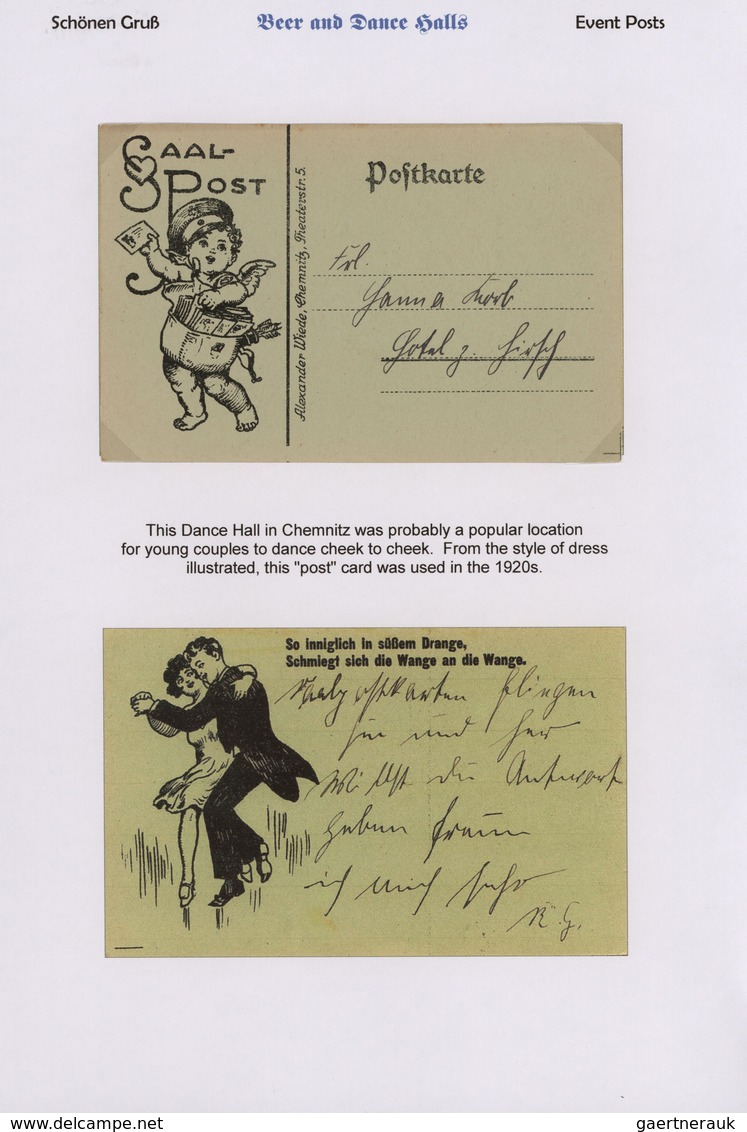 Schönen Gruß
Beer and Dance Halls
Event Posts
SAAL-
POST
Postkarte
Alexander Wiede, Chemnitz, Theaterstr. 5.
Frl.
Hanna Korb
Hotel z. Hirsch
This Dance Hall in Chemnitz was probably a popular location
for young couples to dance cheek to cheek. From the style of dress
illustrated, this "post" card was used in the 1920s.
So inniglich in süßem Drange,
Schmiegt sich die Wange an die Wange.
Saalpostkarten fliegen
hin und her
Willst du Antwort
geben freun
ich mich sehr
K. G.
www.delcampe.net
gaertnerauk